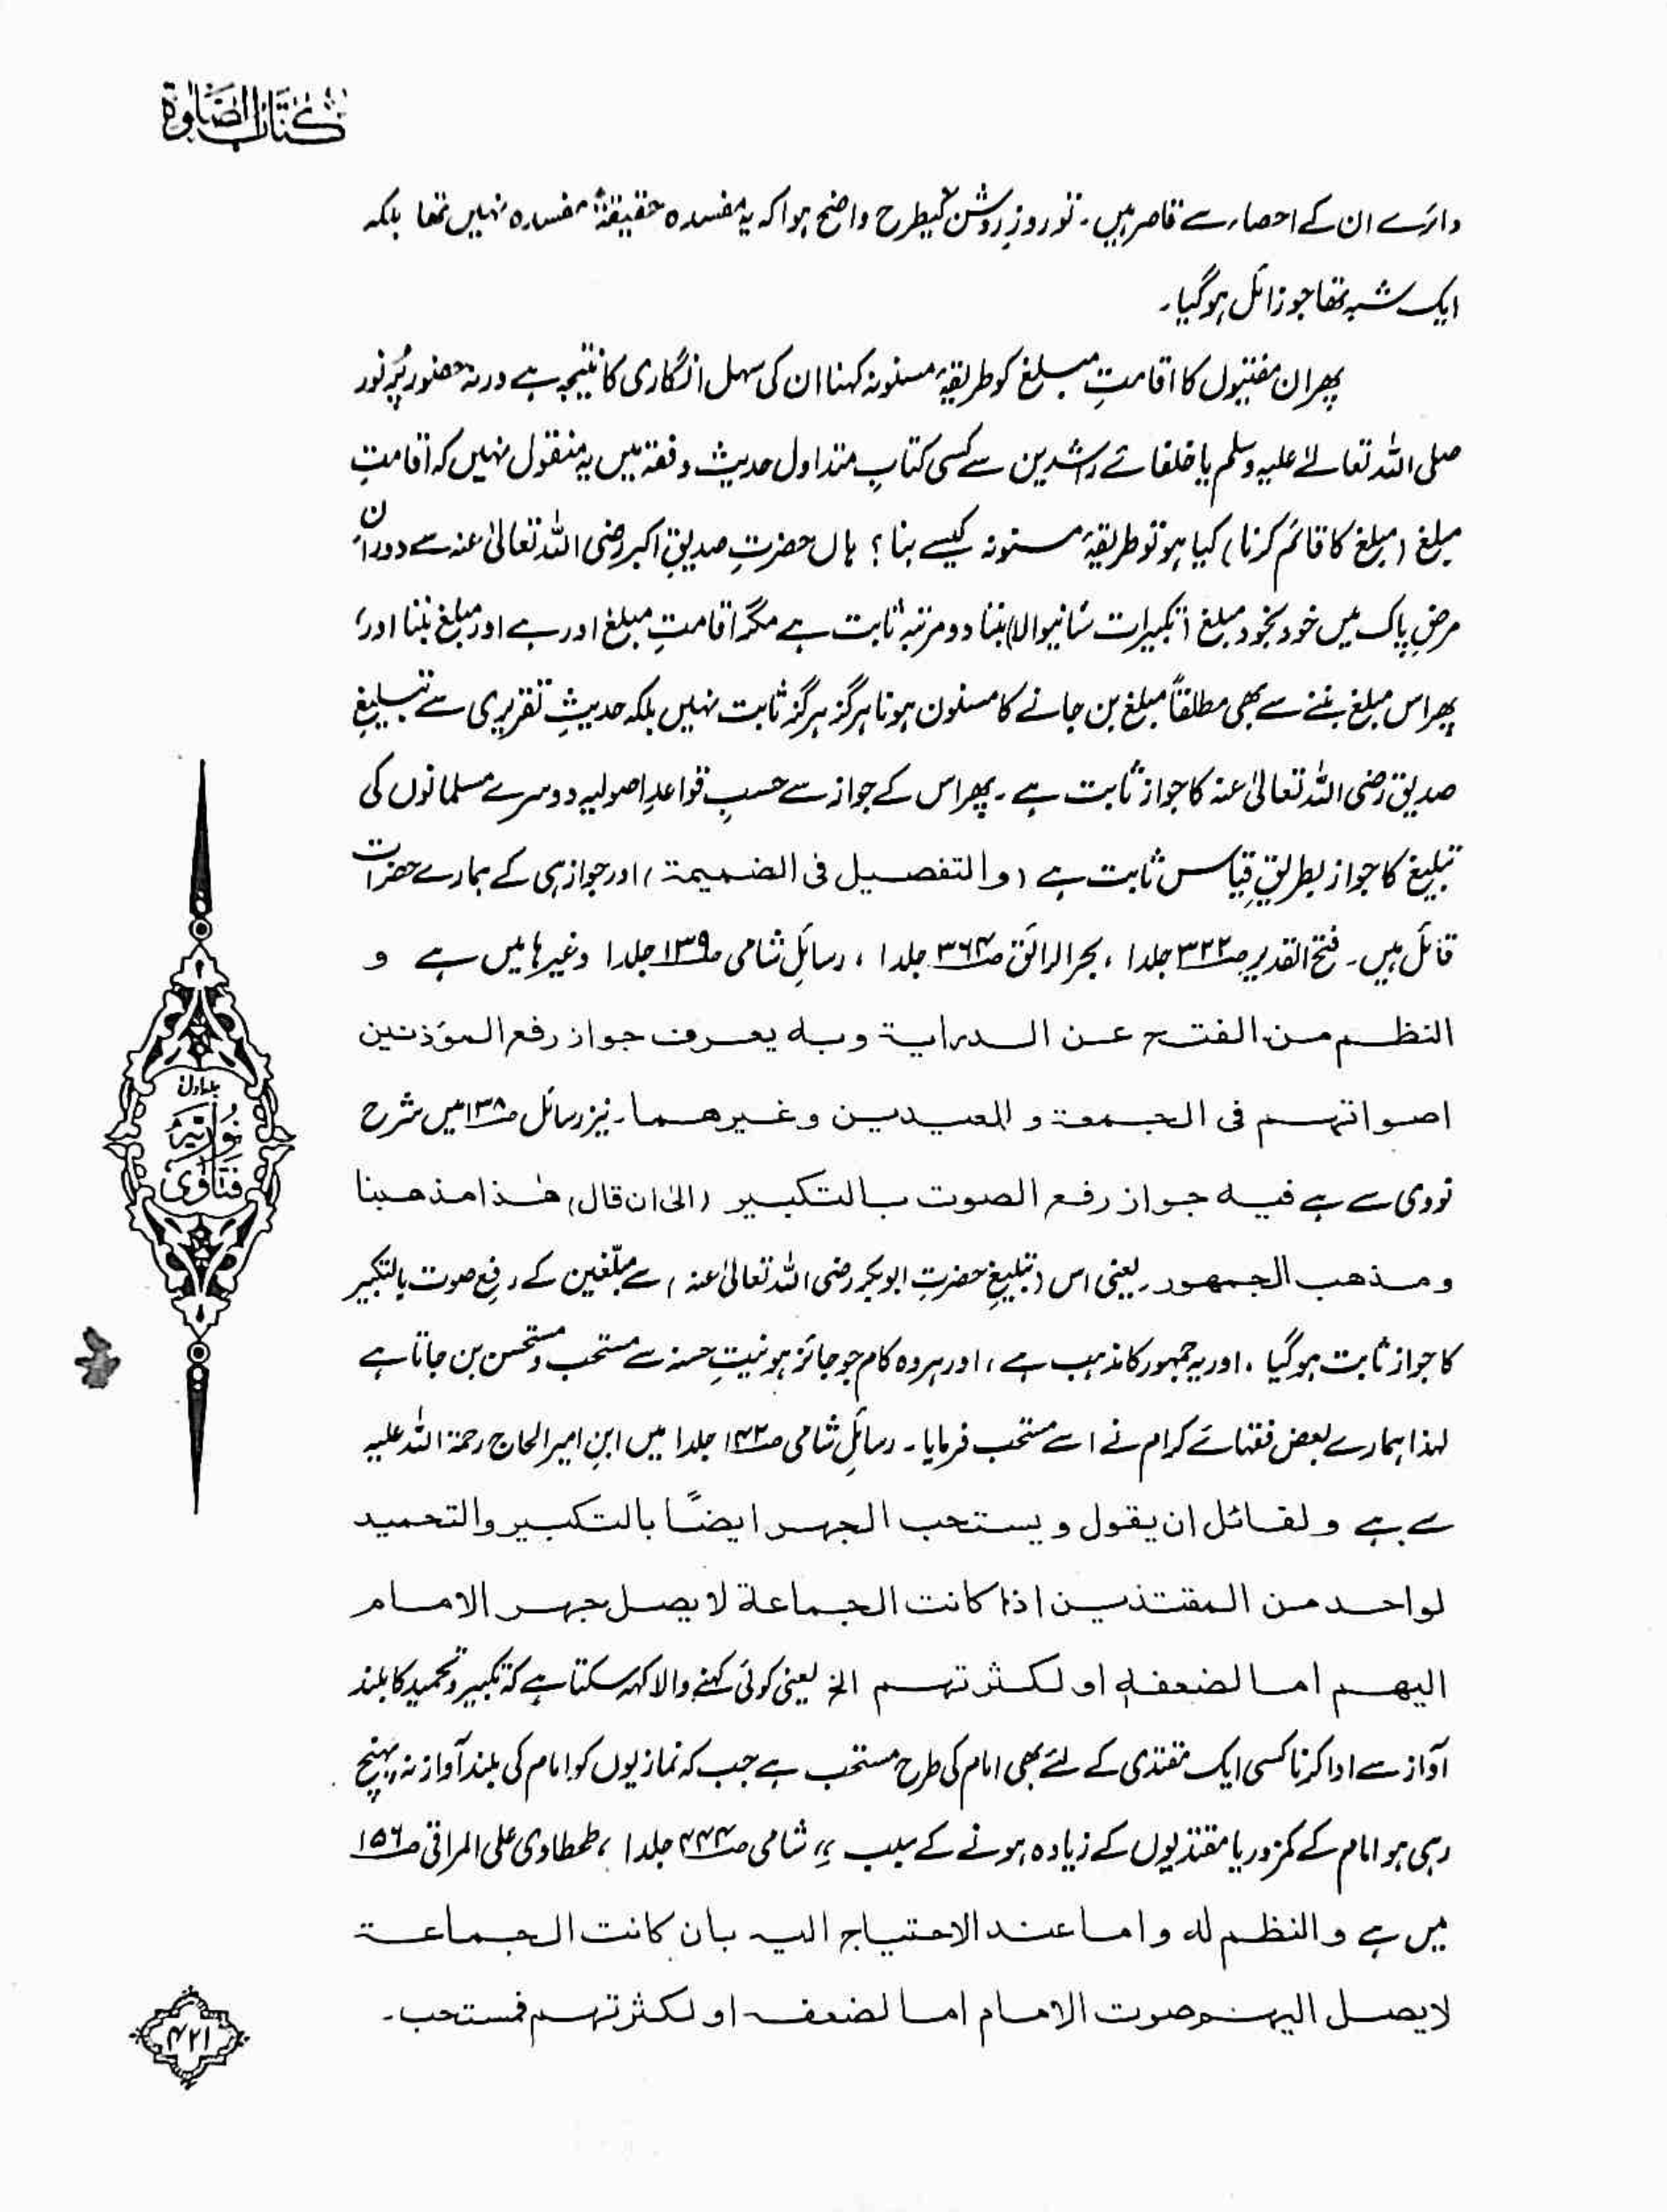 کتاب الصلوٰۃ
دائرے ان کے احصاء سے قاصر ہیں۔ تو روزِ روشن کیطرح واضح ہوا کہ یہ مفسدہ حقیقۃً مفسدہ نہیں تھا بلکہ
ایک شبہ تھا جو زائل ہوگیا۔
پھر ان مفتیوں کا اقامتِ مبلغ کو طریقۂ مسنونہ کہنا ان کی سہل انگاری کا نتیجہ ہے ورنہ حضور پُر نور
صلی اللہ تعالےٰ علیہ وسلم یا خلفائے راشدین سے کسی کتابِ متداول حدیث و فقہ میں یہ منقول نہیں کہ اقامتِ
مبلغ (مبلغ کا قائم کرنا) کیا ہو تو طریقۂ مسنونہ کیسے بنا؟ ہاں حضرتِ صدیقِ اکبر رضی اللہ تعالیٰ عنہ سے دورانِ
مرضِ پاک میں خود بخود مبلغ (تکبیرات سنانیوالا) بننا دو مرتبہ ثابت ہے مگر اقامتِ مبلغ اور ہے اور مبلغ بننا اور،
پھر اس مبلغ بننے سے بھی مطلقاً مبلغ بن جانے کا مسنون ہونا ہرگز ہرگز ثابت نہیں بلکہ حدیثِ تقریری سے تبلیغِ
صدیق رضی اللہ تعالیٰ عنہ کا جواز ثابت ہے۔ پھر اس کے جواز سے حسبِ قواعدِ اصولیہ دوسرے مسلمانوں کی
تبلیغ کا جواز بطریقِ قیاس ثابت ہے (والتفصیل فی الضمیمۃ) اور جواز ہی کے ہمارے حضرات
قائل ہیں۔ فتح القدیر صـ۳۲۲ جلد ا، بحر الرائق صـ۳۶۴ جلد ا، رسائلِ شامی صـ۱۳۹ جلد ا وغیرہا میں ہے و
النظم من الفتح عن الدرایۃ وبہ یعرف جواز رفع المؤذنین
اصواتہم فی الجمعۃ و العیدین وغیرہما۔ نیز رسائل صـ۱۳۸ میں شرح
نووی سے ہے فیہ جواز رفع الصوت بالتکبیر (الیٰ ان قال) ھٰذا مذھبنا
ومذھب الجمھور۔ یعنی اس (تبلیغِ حضرتِ ابوبکر رضی اللہ تعالیٰ عنہ) سے مبلّغین کے رفعِ صوت بالتکبیر
کا جواز ثابت ہوگیا، اور یہ جمہور کا مذہب ہے، اور ہر وہ کام جو جائز ہو نیتِ حسنہ سے مستحب و مستحسن بن جاتا ہے
لہذا ہمارے بعض فقہائے کرام نے اسے مستحب فرمایا۔ رسائلِ شامی صـ۱۴۲ جلد ا میں ابنِ امیر الحاج رحمۃ اللہ علیہ
سے ہے ولقائل ان یقول ویستحب الجہر ایضًا بالتکبیر والتحمید
لواحد من المقتذین اذا کانت الجماعۃ لا یصل جہر الامام
الیھم اما لضعفہٖ او لکثرتہم الخ یعنی کوئی کہنے والا کہہ سکتا ہے کہ تکبیر و تحمید کا بلند
آواز سے ادا کرنا کسی ایک مقتدی کے لئے بھی امام کی طرح مستحب ہے جب کہ نمازیوں کو امام کی بلند آواز نہ پہنچ
رہی ہو امام کے کمزور یا مقتدیوں کے زیادہ ہونے کے سبب، شامی صـ۴۴۴ جلد ا، طحطاوی علی المراقی صـ۱۵۶
میں ہے والنظم لہ واما عند الاحتیاج الیہ بان کانت الجماعۃ
لا یصل الیہم صوت الامام اما لضعفہ او لکثرتہم فمستحب۔
جلد اول
نوریہ
فتاویٰ
۴۲۱